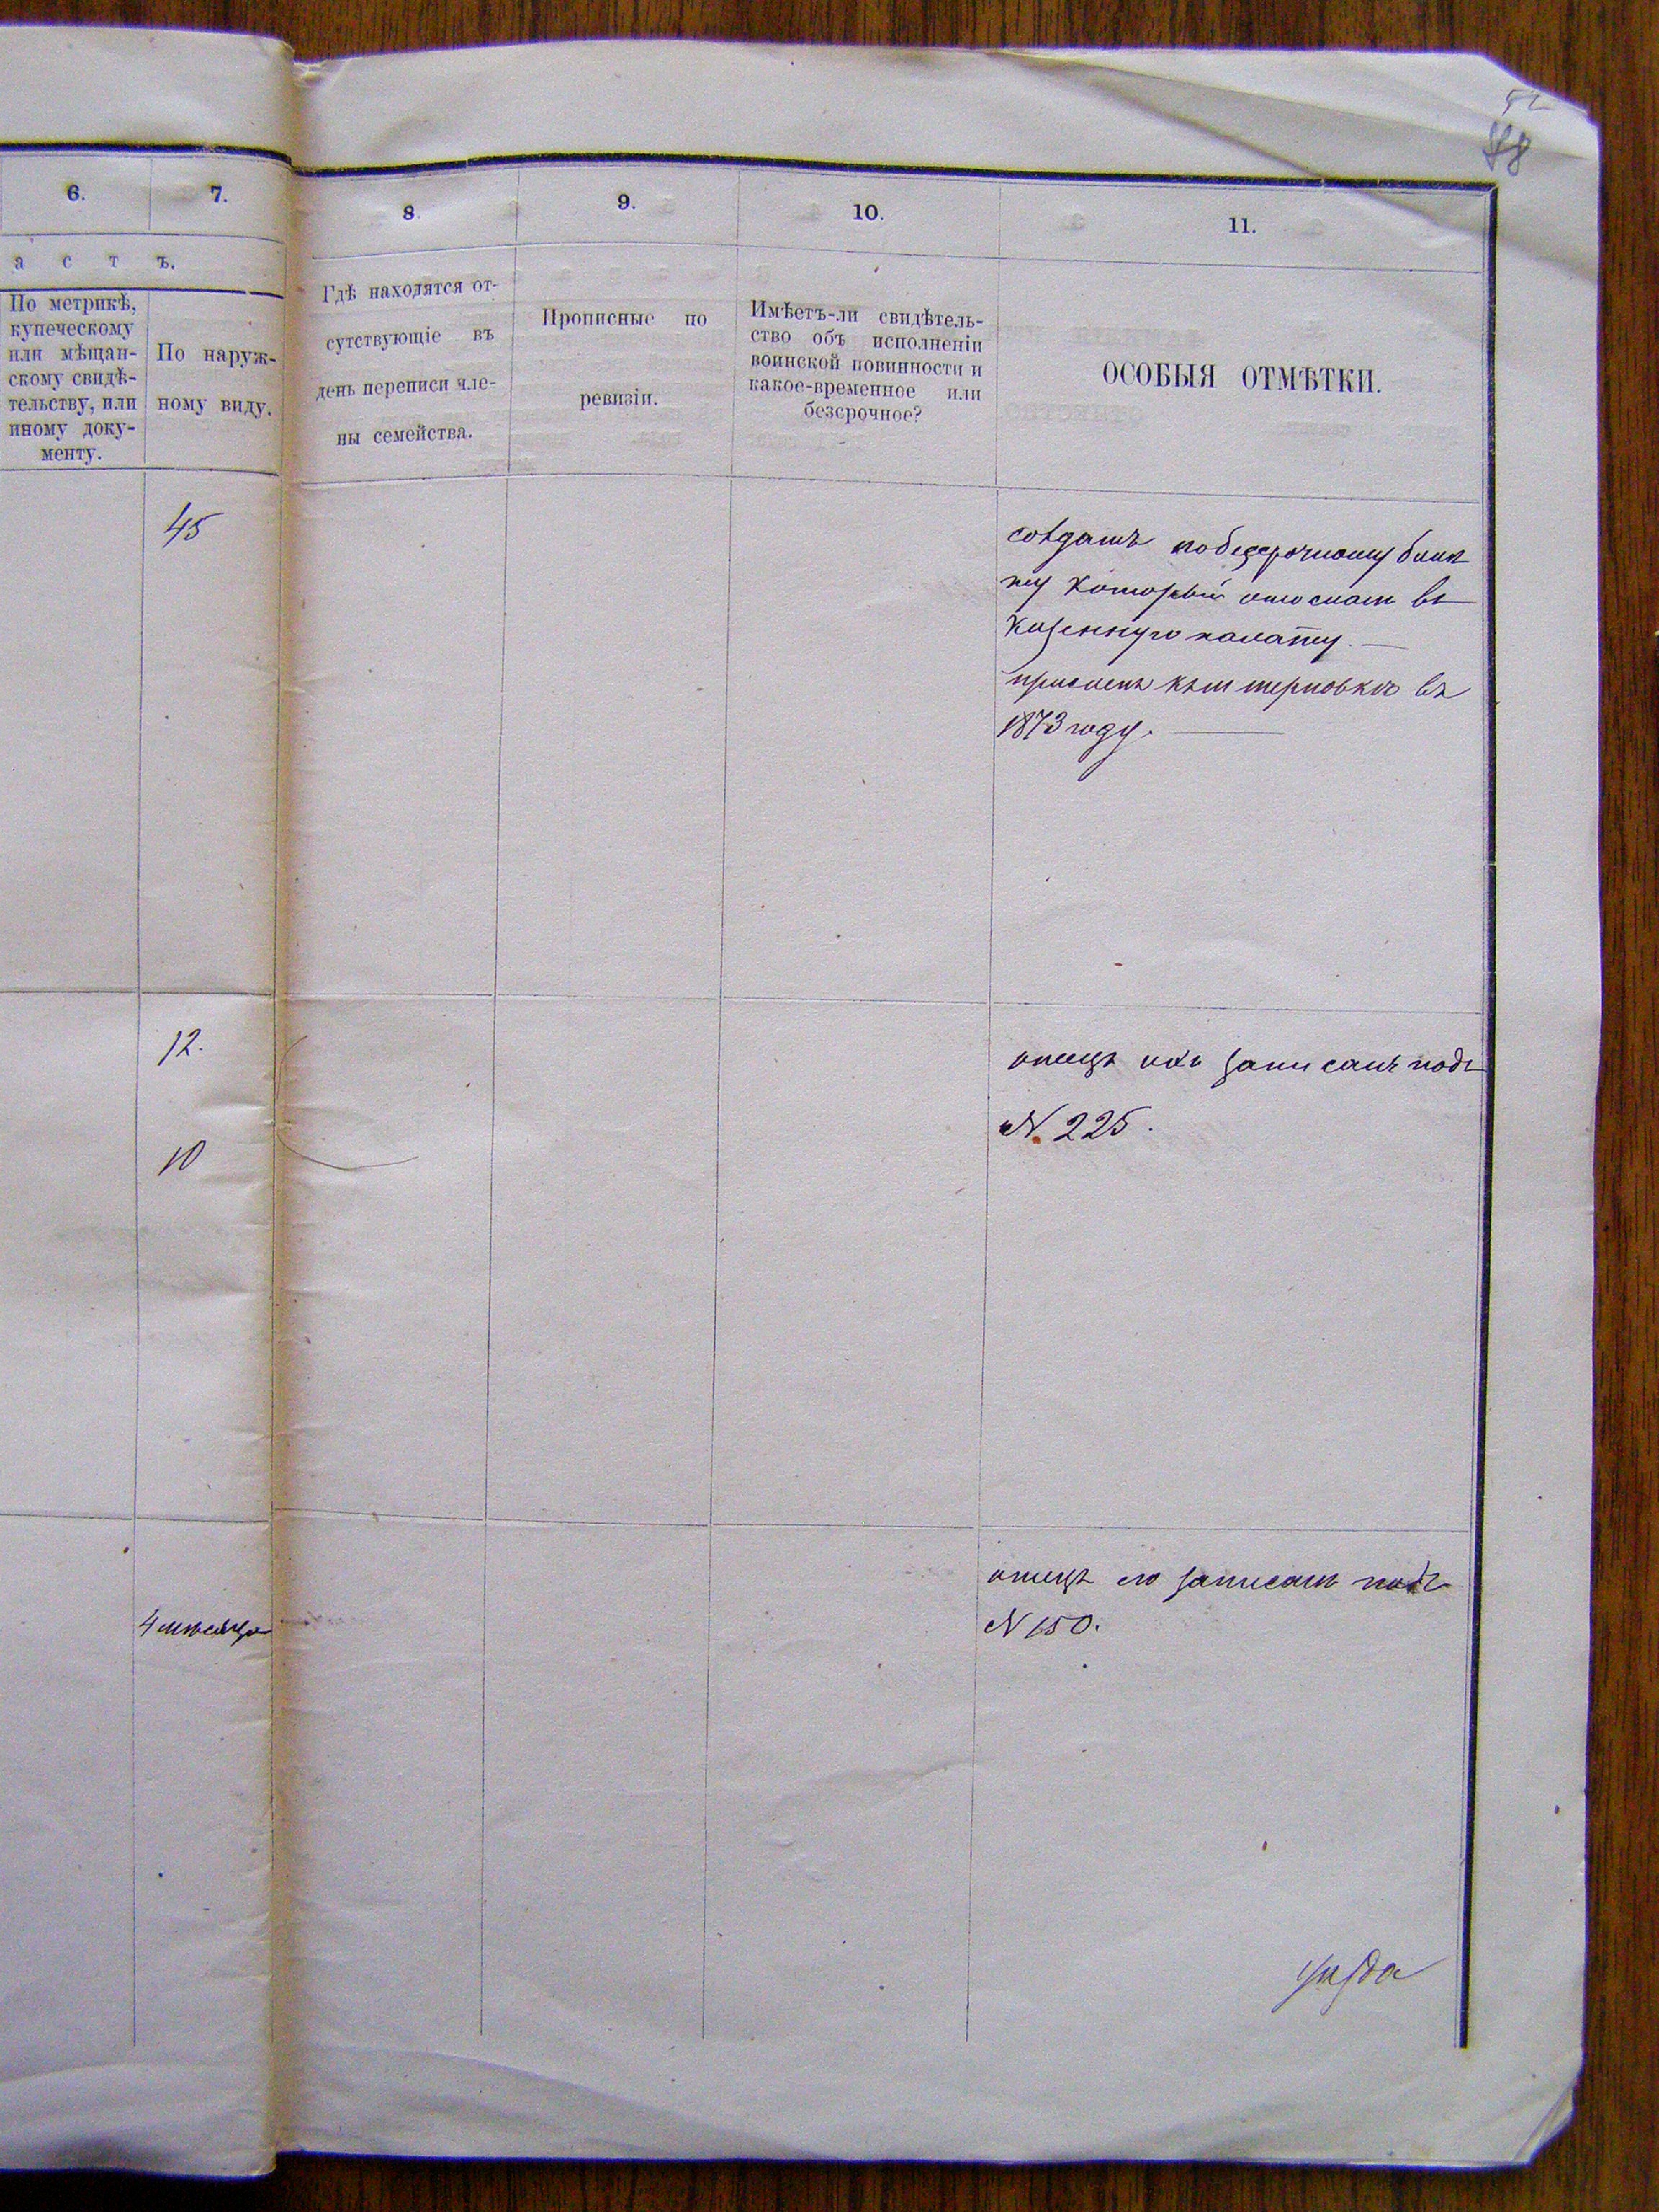 52
88
6.
7.
8.
9.
10.
11.
а с т ъ.
По метрикѣ,
купеческому
или мѣщан-
скому свидѣ-
тельству, или
иному доку-
менту.
По наруж-
ному виду.
Гдѣ находятся от-
сутствующіе въ
день переписи чле-
ны семейства.
Прописные по
ревизіи.
Имѣетъ-ли свидѣтель-
ство объ исполненіи
воинской повинности и
какое-временное или
безсрочное?
ОСОБЫЯ ОТМѢТКИ.
45
солдатъ по безсрочному биле
ту который отослан въ
Казенную палату.
приписанъ къ терновкѣ въ
1873 году.
12.
10
отецъ ихъ записанъ подъ
№ 225.
4 мѣсяца
отецъ его записанъ подъ
№ 150.